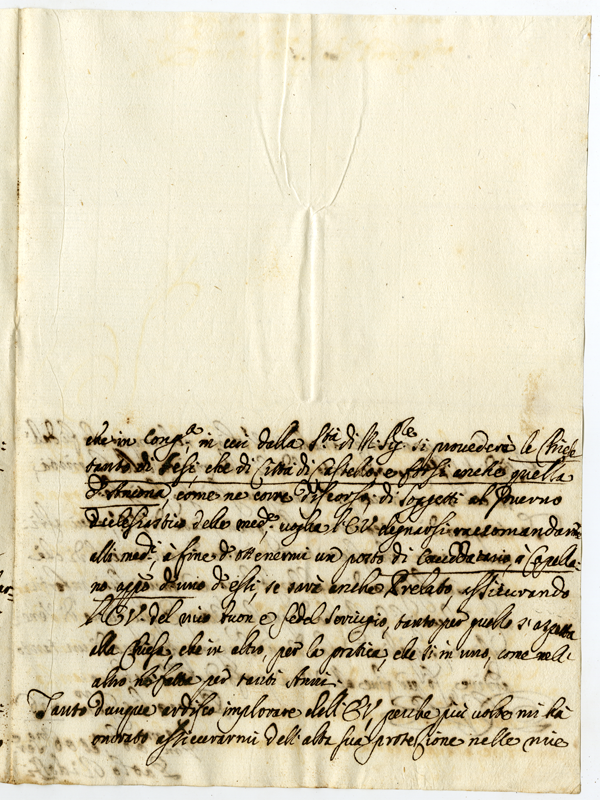 che in Cong.e in cui dalla S.tà di N. Sig.re si provederà le Chiese
tanto di Jesi, che di Città di Castello, e forse anche quella
d'Ancona, come ne corre discorso di soggetti al Governo
Ecclesiastico delle med.e, voglia l'E.V. degnarsi raccomandarmi
alli med.i, à fine d'ottenermi un posto di Caudatario, ò Capella-
no app.o d'uno d'essi, se sarà anche Prelato, assicurando
l'E.V. del mio buon e fedel Servigio, tanto per quello s'aspetta
alla Chiesa, che in altro, per la pratica, che sì in uno, come nell'
altro hò fatta per tanti Anni.
Tanto dunque ardisco implorare dall'E.V., perche più volte mi hà
onorato assicurarmi dell'alta sua protezione nelle mie